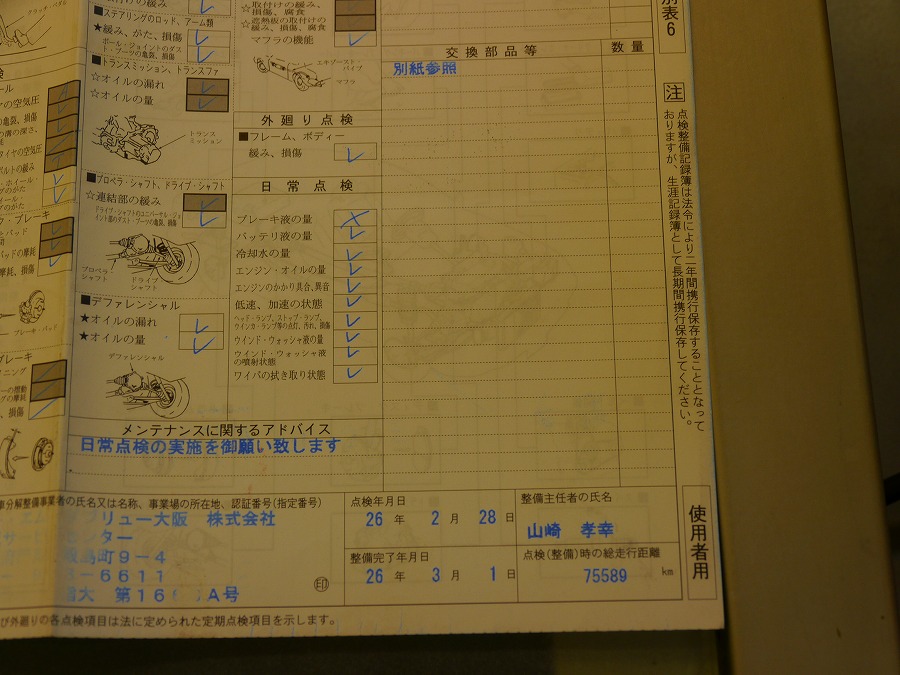 クラッチ・ペダル
ステアリングのロッド、アーム類
★緩み、がた、損傷
ボール・ジョイントのダスト・ブーツの亀裂、損傷
■トランスミッション、トランスファ
☆オイルの漏れ
☆オイルの量
トランス
ミッション
■プロペラ・シャフト、ドライブ・シャフト
☆連結部の緩み
ドライブ・シャフトのユニバーサル・ジョイント部のダスト・ブーツの亀裂、損傷
プロペラ
シャフト
ドライブ
シャフト
■デファレンシャル
★オイルの漏れ
★オイルの量
デファレンシャル
☆取付けの緩み、
損傷、腐食
☆遮熱板の取付けの
緩み、損傷、腐食
マフラの機能
エキゾースト・
パイプ
マフラ
外廻り点検
■フレーム、ボディー
緩み、損傷
日常点検
ブレーキ液の量
バッテリ液の量
冷却水の量
エンジン・オイルの量
エンジンのかかり具合、異音
低速、加速の状態
ヘッド・ランプ、ストップ・ランプ、
ウインカ・ランプ等の点灯、汚れ、損傷
ウインド・ウォッシャ液の量
ウインド・ウォッシャ液
の噴射状態
ワイパの拭き取り状態
交換部品等
数量
別紙参照
別表6
注
点検整備記録簿は法令により二年間携行保存することとなって
おりますが、生涯記録簿として長期間携行保存してください。
メンテナンスに関するアドバイス
日常点検の実施を御願い致します
車分解整備事業者の氏名又は名称、事業場の所在地、認証番号(指定番号)
ブリュー大阪 株式会社
センター
島町9-4
-6611
大 第16 A号
印
点検年月日
26 年 2 月 28 日
整備完了年月日
26 年 3 月 1 日
整備主任者の氏名
山崎 孝幸
点検(整備)時の総走行距離
75589 km
使用者用
び外廻りの各点検項目は法に定められた定期点検項目を示します。